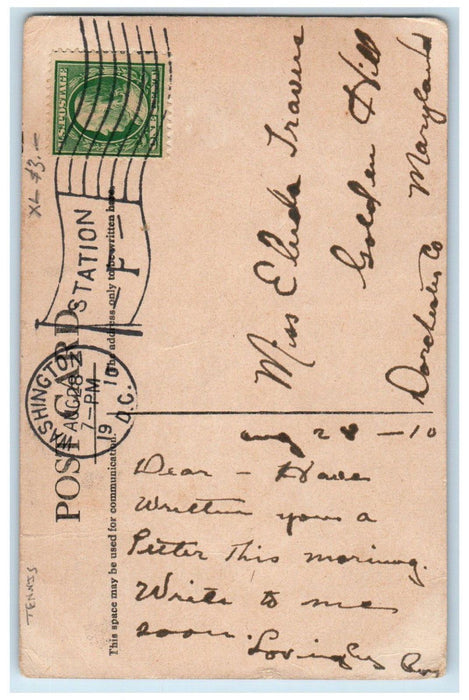 TENNIS
XL $3.—
POST CARD
This space may be used for communication.
The address only to be written here
U.S. POSTAGE
ONE CENT
WASHINGTON
AUG 28
7–PM
1910
D.C.
STATION
F
aug 28 –10
Dear – Have
Written you a
Letter this morning.
Write to me
soon. Lovingly
Miss Elvida Travers
Golden Hill
Dorchester Co Maryland